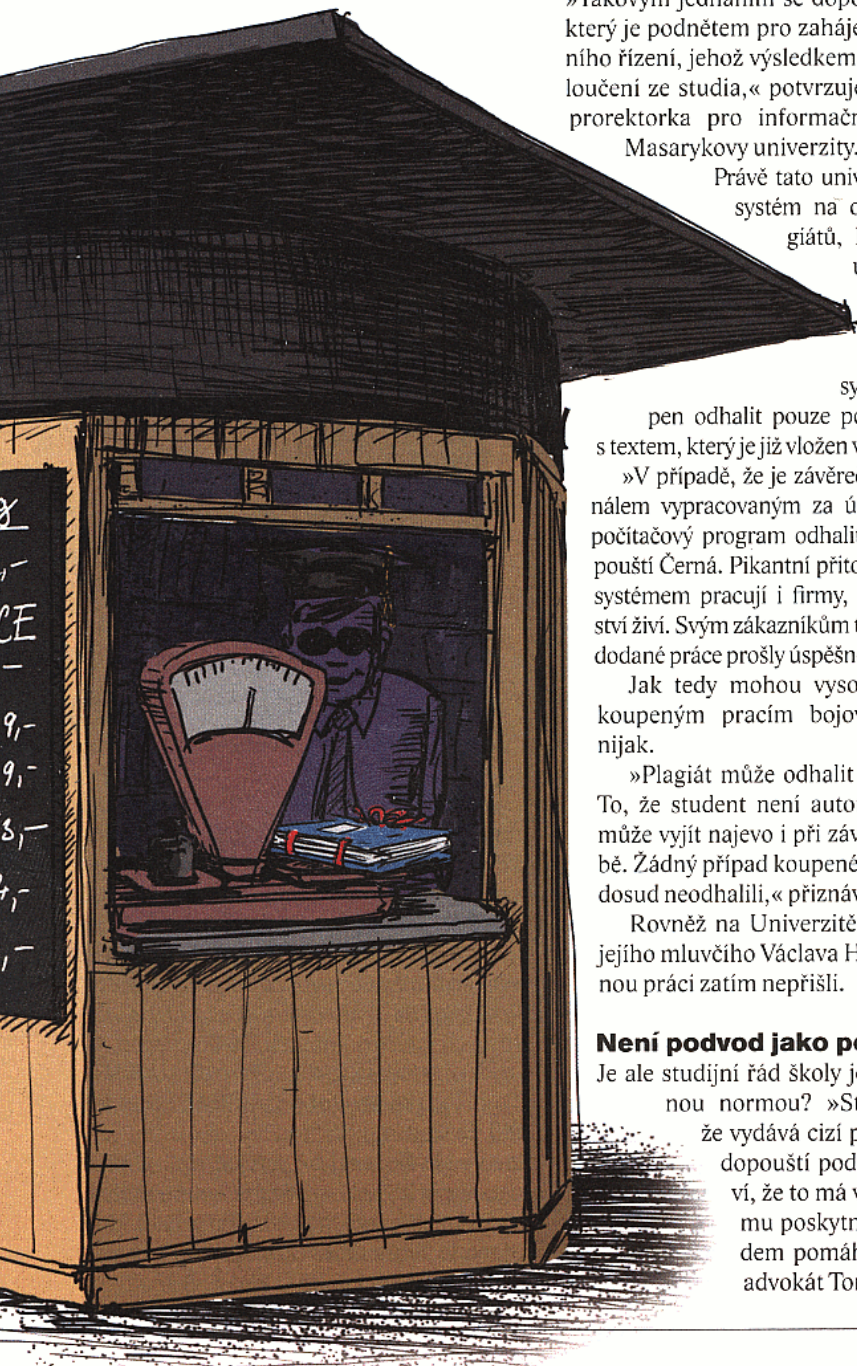 CE
9,-
9,-
3,-
»Takovým jednáním se dopo
který je podnětem pro zaháje
ního řízení, jehož výsledkem
loučení ze studia,« potvrzuje
prorektorka pro informačn
Masarykovy univerzity.
Právě tato univ
systém na o
giátů,
u
sy
pen odhalit pouze po
s textem, který je již vložen v
»V případě, že je závěreč
nálem vypracovaným za ú
počítačový program odhalit
pouští Černá. Pikantní přito
systémem pracují i firmy,
ství živí. Svým zákazníkům t
dodané práce prošly úspěšn
Jak tedy mohou vyso
koupeným pracím bojov
nijak.
»Plagiát může odhalit
To, že student není auto
může vyjít najevo i při záv
bě. Žádný případ koupené
dosud neodhalili,« přiznáv
Rovněž na Univerzitě
jejího mluvčího Václava H
nou práci zatím nepřišli.
Není podvod jako po
Je ale studijní řád školy je
nou normou? »St
že vydává cizí p
dopouští pod
ví, že to má v
mu poskytn
dem pomáh
advokát Tom